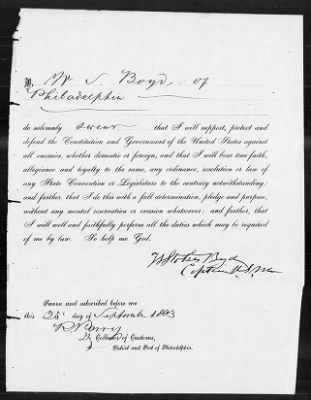 I, W S. Boyd, of
Philadelphia
do solemnly swear that I will support, protect and
defend the Constitution and Government of the United States against
all enemies, whether domestic or foreign, and that I will bear true faith,
allegiance and loyalty to the same, any ordinance, resolution or law of
any State Convention or Legislature to the contrary notwithstanding;
and further, that I do this with a full determination, pledge and purpose,
without any mental reservation or evasion whatsoever; and further, that
I will well and faithfully perform all the duties which may be required
of me by law. So help me God.
Boyd
Captain
Sworn and subscribed before me
this 25 day of September 1863
Collector of Customs,
District and Port of Philadelphia.